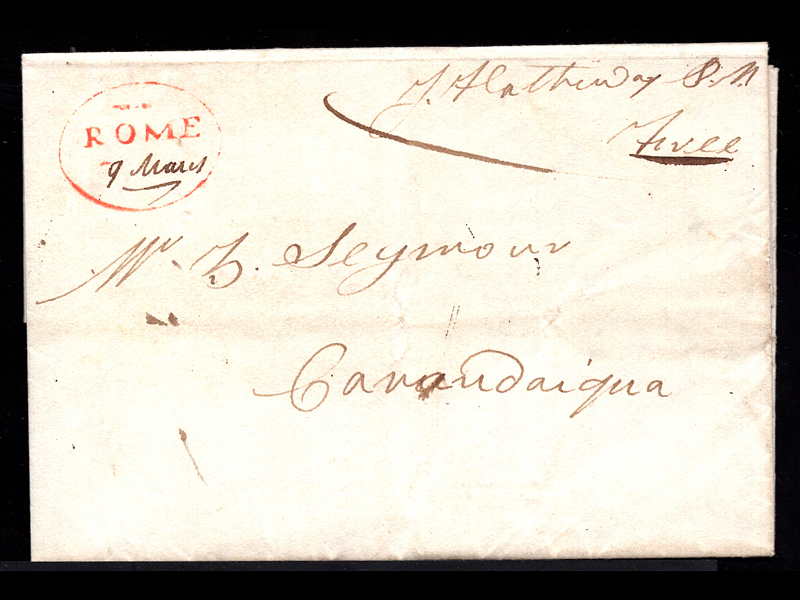 ROME
9 March
J. Hathaway P. M.
Free
Mr. Z. Seymour
Canandaigua